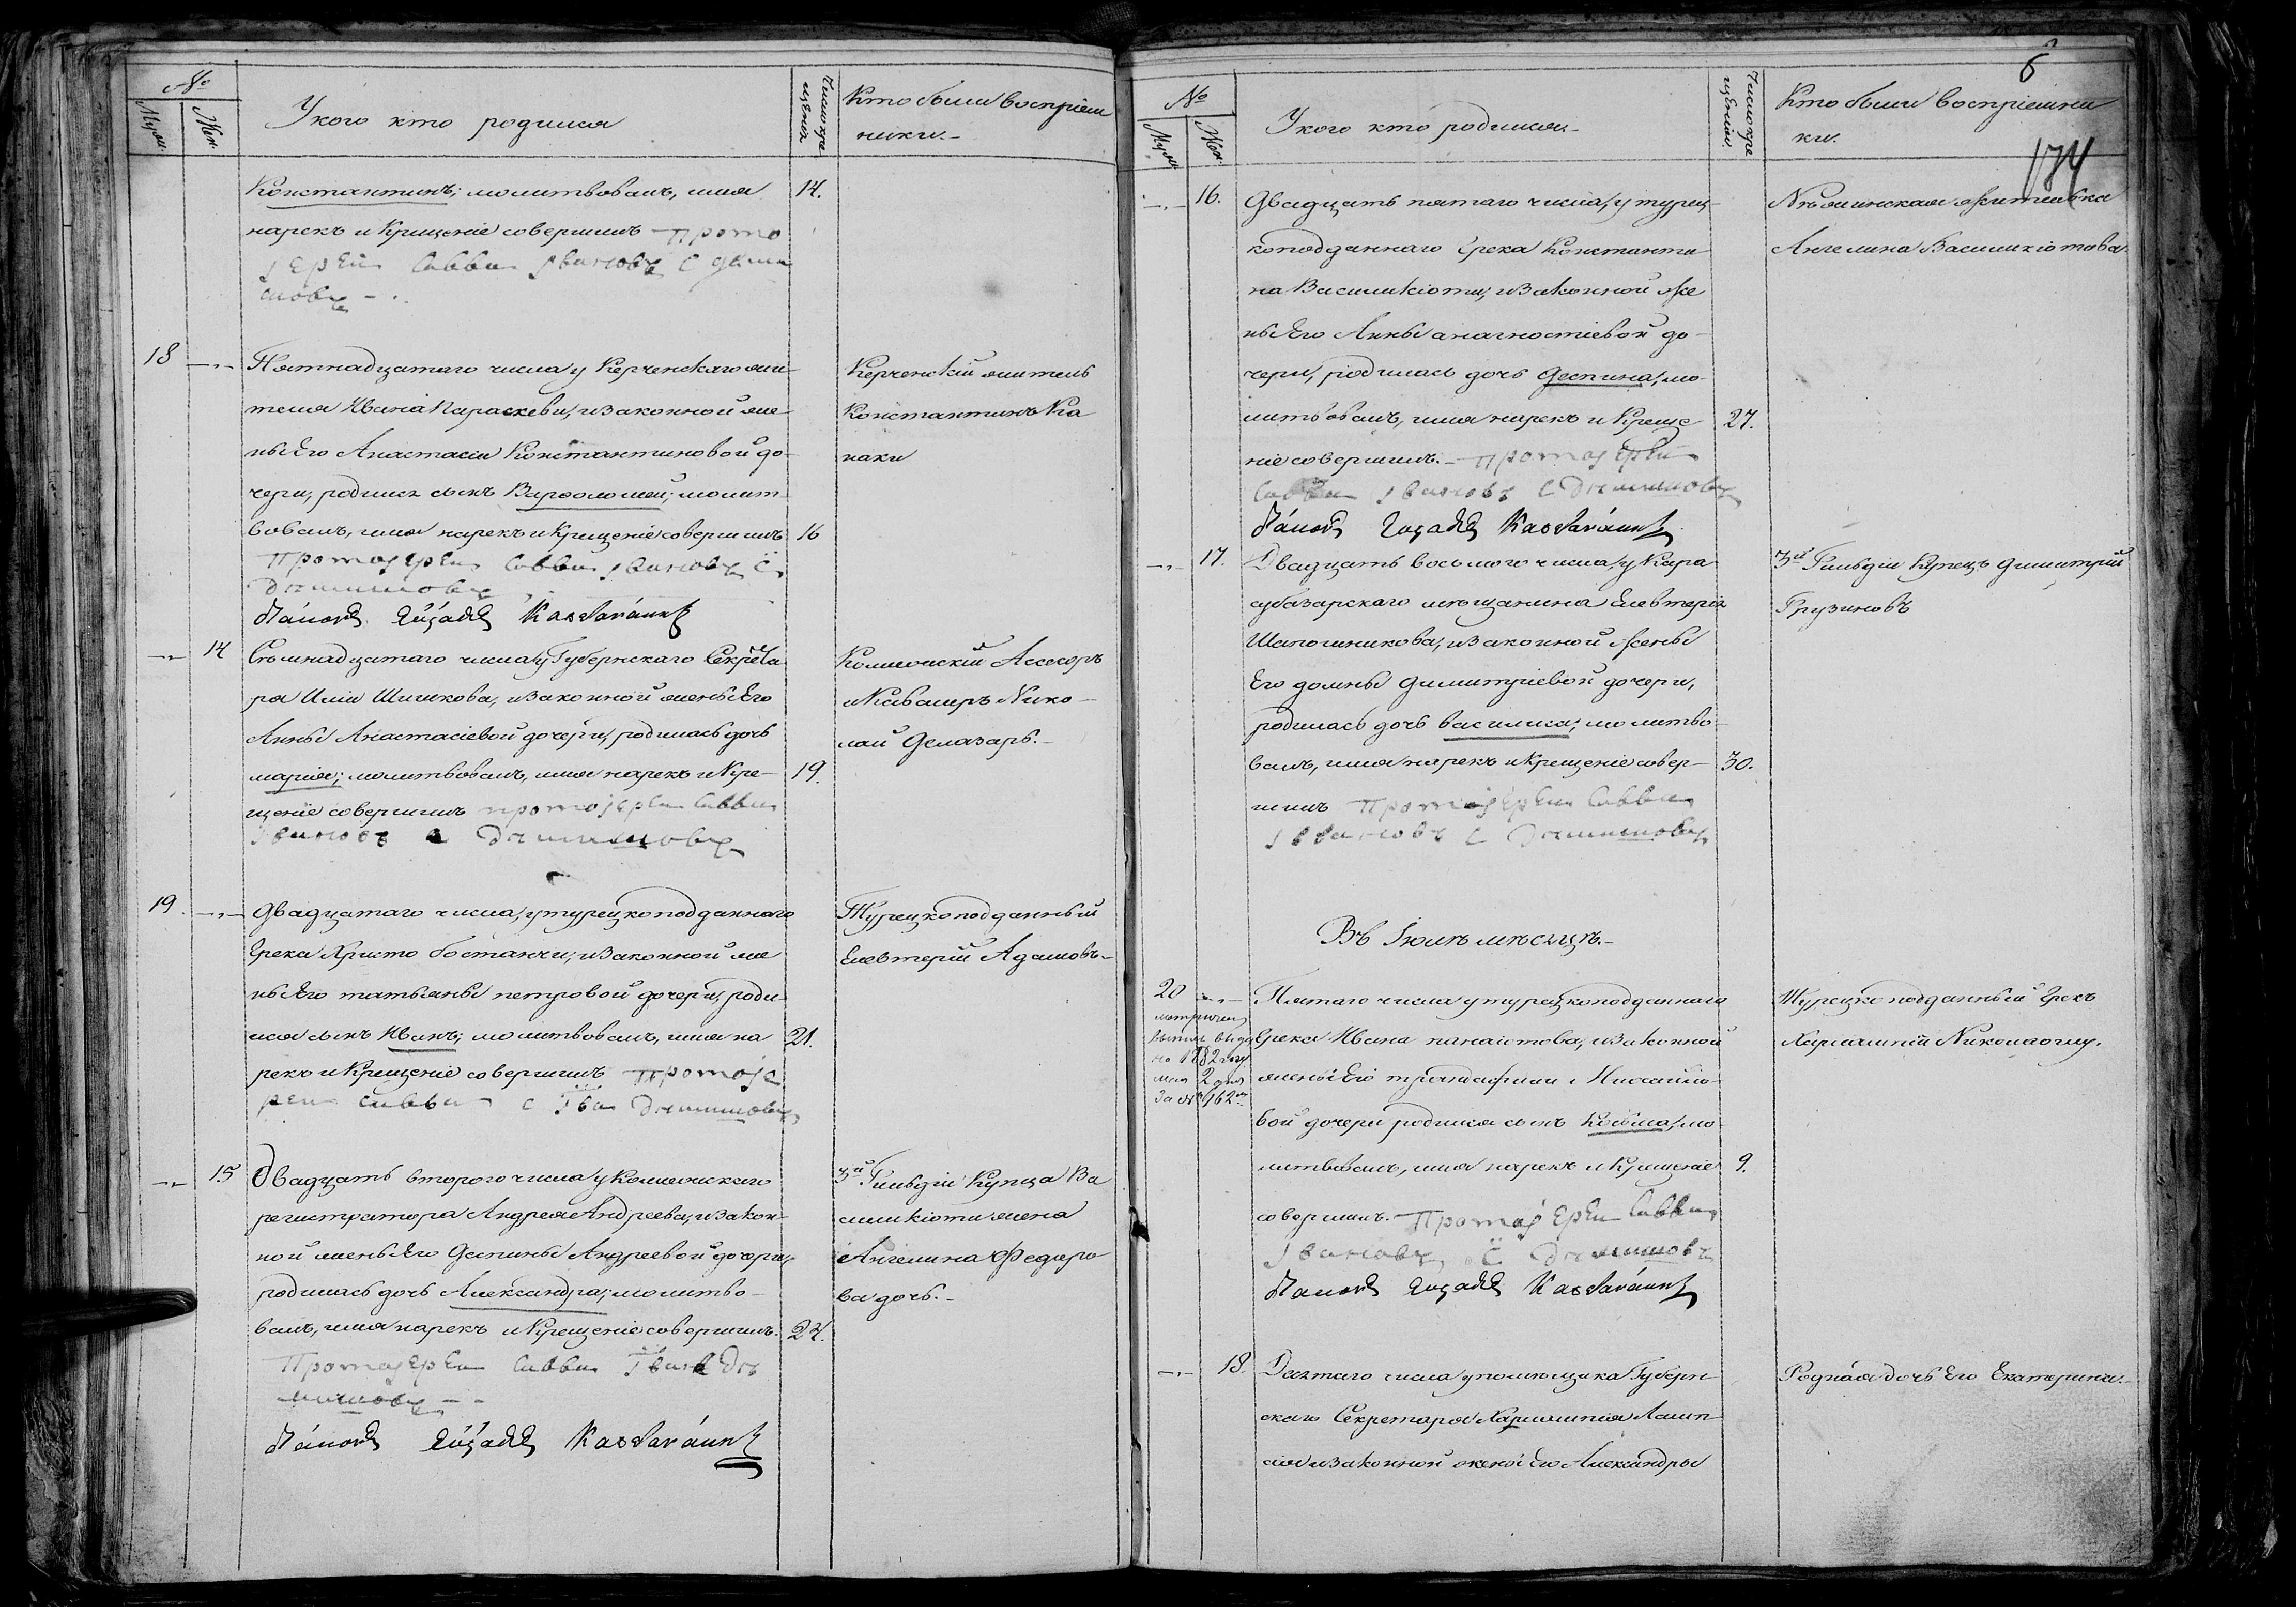 №
Муж.
Жен.
У кого кто родился
Число кре
щенія
Кто были воспріем
ники.-
Константинъ; молитвовалъ, имя
14.
нарекъ и Крещеніе совершилъ прото
іерей Савва Ивановъ С
18
Пятнадцатаго числа у Керченскаго жи-
теля Ивана Параскеви, изаконной же-
ны Его Анастасіи Константиновой до-
чери, родился сынъ Варѳоломей; молит-
вовалъ, имя нарекъ и Крещеніе совершилъ
16
Протоіерей Савва Ивановъ С
Керченскій житель
Константинъ Ка
наки
14
Семнадцатаго числа у Губернскаго Секрета
ря Ильи Шишкова, изаконной жены Его
Анны Анастасіевой дочери, родилась дочь
марія; молитвовалъ, имя нарекъ и Кре-
19.
щеніе совершилъ протоіерей Савва
Ивановъ С
Коллежскій Ассесоръ
и Кавалеръ Нико-
лай Делазарь.-
19.
Двадцатаго числа, у турецкоподданнаго
Грека Христо бостанчи; изаконной же
ны Его татьяны петровой дочери, роди
лся сынъ Иванъ; молитвовалъ, имя на
21.
рекъ и Крещеніе совершилъ протоіе
рей Савва
Турецкоподданный
Елевтерій Адамовъ-
15
Двадцать второго числа у Коллежскаго
регистратора Андрея Андреева, изакон-
ной жены Его Деспины Андреевой дочери,
родилась дочь Александра; молитво-
валъ, имя нарекъ и Крещеніе совершилъ.
24.
Протоіерей Савва
3й Гильдіи Купца Ва
силикіоти жена
Ангелина Федоро
ва дочь.-
6
174
№
Муж.
Жен.
У кого кто родился-
Число кре
щенія.
Кто были воспріемни
ки.
16.
Двадцать пятаго числа, у турец-
коподданнаго Грека Константи
на Василикіоти; изаконной же
ны Его Анны анагностіевой до-
чери, родилась дочь Деспина, мо-
литвовалъ, имя нарекъ и Креще
27.
ніе совершилъ.- протоіерей
Савва Ивановъ С
жителька
Ангелина Василикіотова.
17.
Двадцать восьмого числа, у Кара
субазарскаго мѣщанина Елевтерія
Шапошникова, изаконной жены
Его домны Димитріевой дочери,
родилась дочь василиса; молитво-
валъ, имя нарекъ и Крещеніе совер-
30.
шилъ Протоіерей Савва
Ивановъ С
3й Гильдіи Купецъ Димитрій
Грузиновъ
Въ Іюнѣ мѣсяцѣ.-
20
Пятаго числа у турецкоподданнаго
Грека Ивана панаіотова, изаконной
жены Его трандафили Михайло-
вой дочери родился сынъ Козьма, мо
литвовалъ, имя нарекъ и Крещеніе
9.
совершилъ. Протоіерей Савва
Ивановъ С
Турецкоподданный Грекъ
Харлампій Николаоглу.
18.
Десятаго числа у помѣщика Губерн
скаго Секретаря Харлампія
изаконной жены Его Александры
Родная дочь Его Екатерина.-